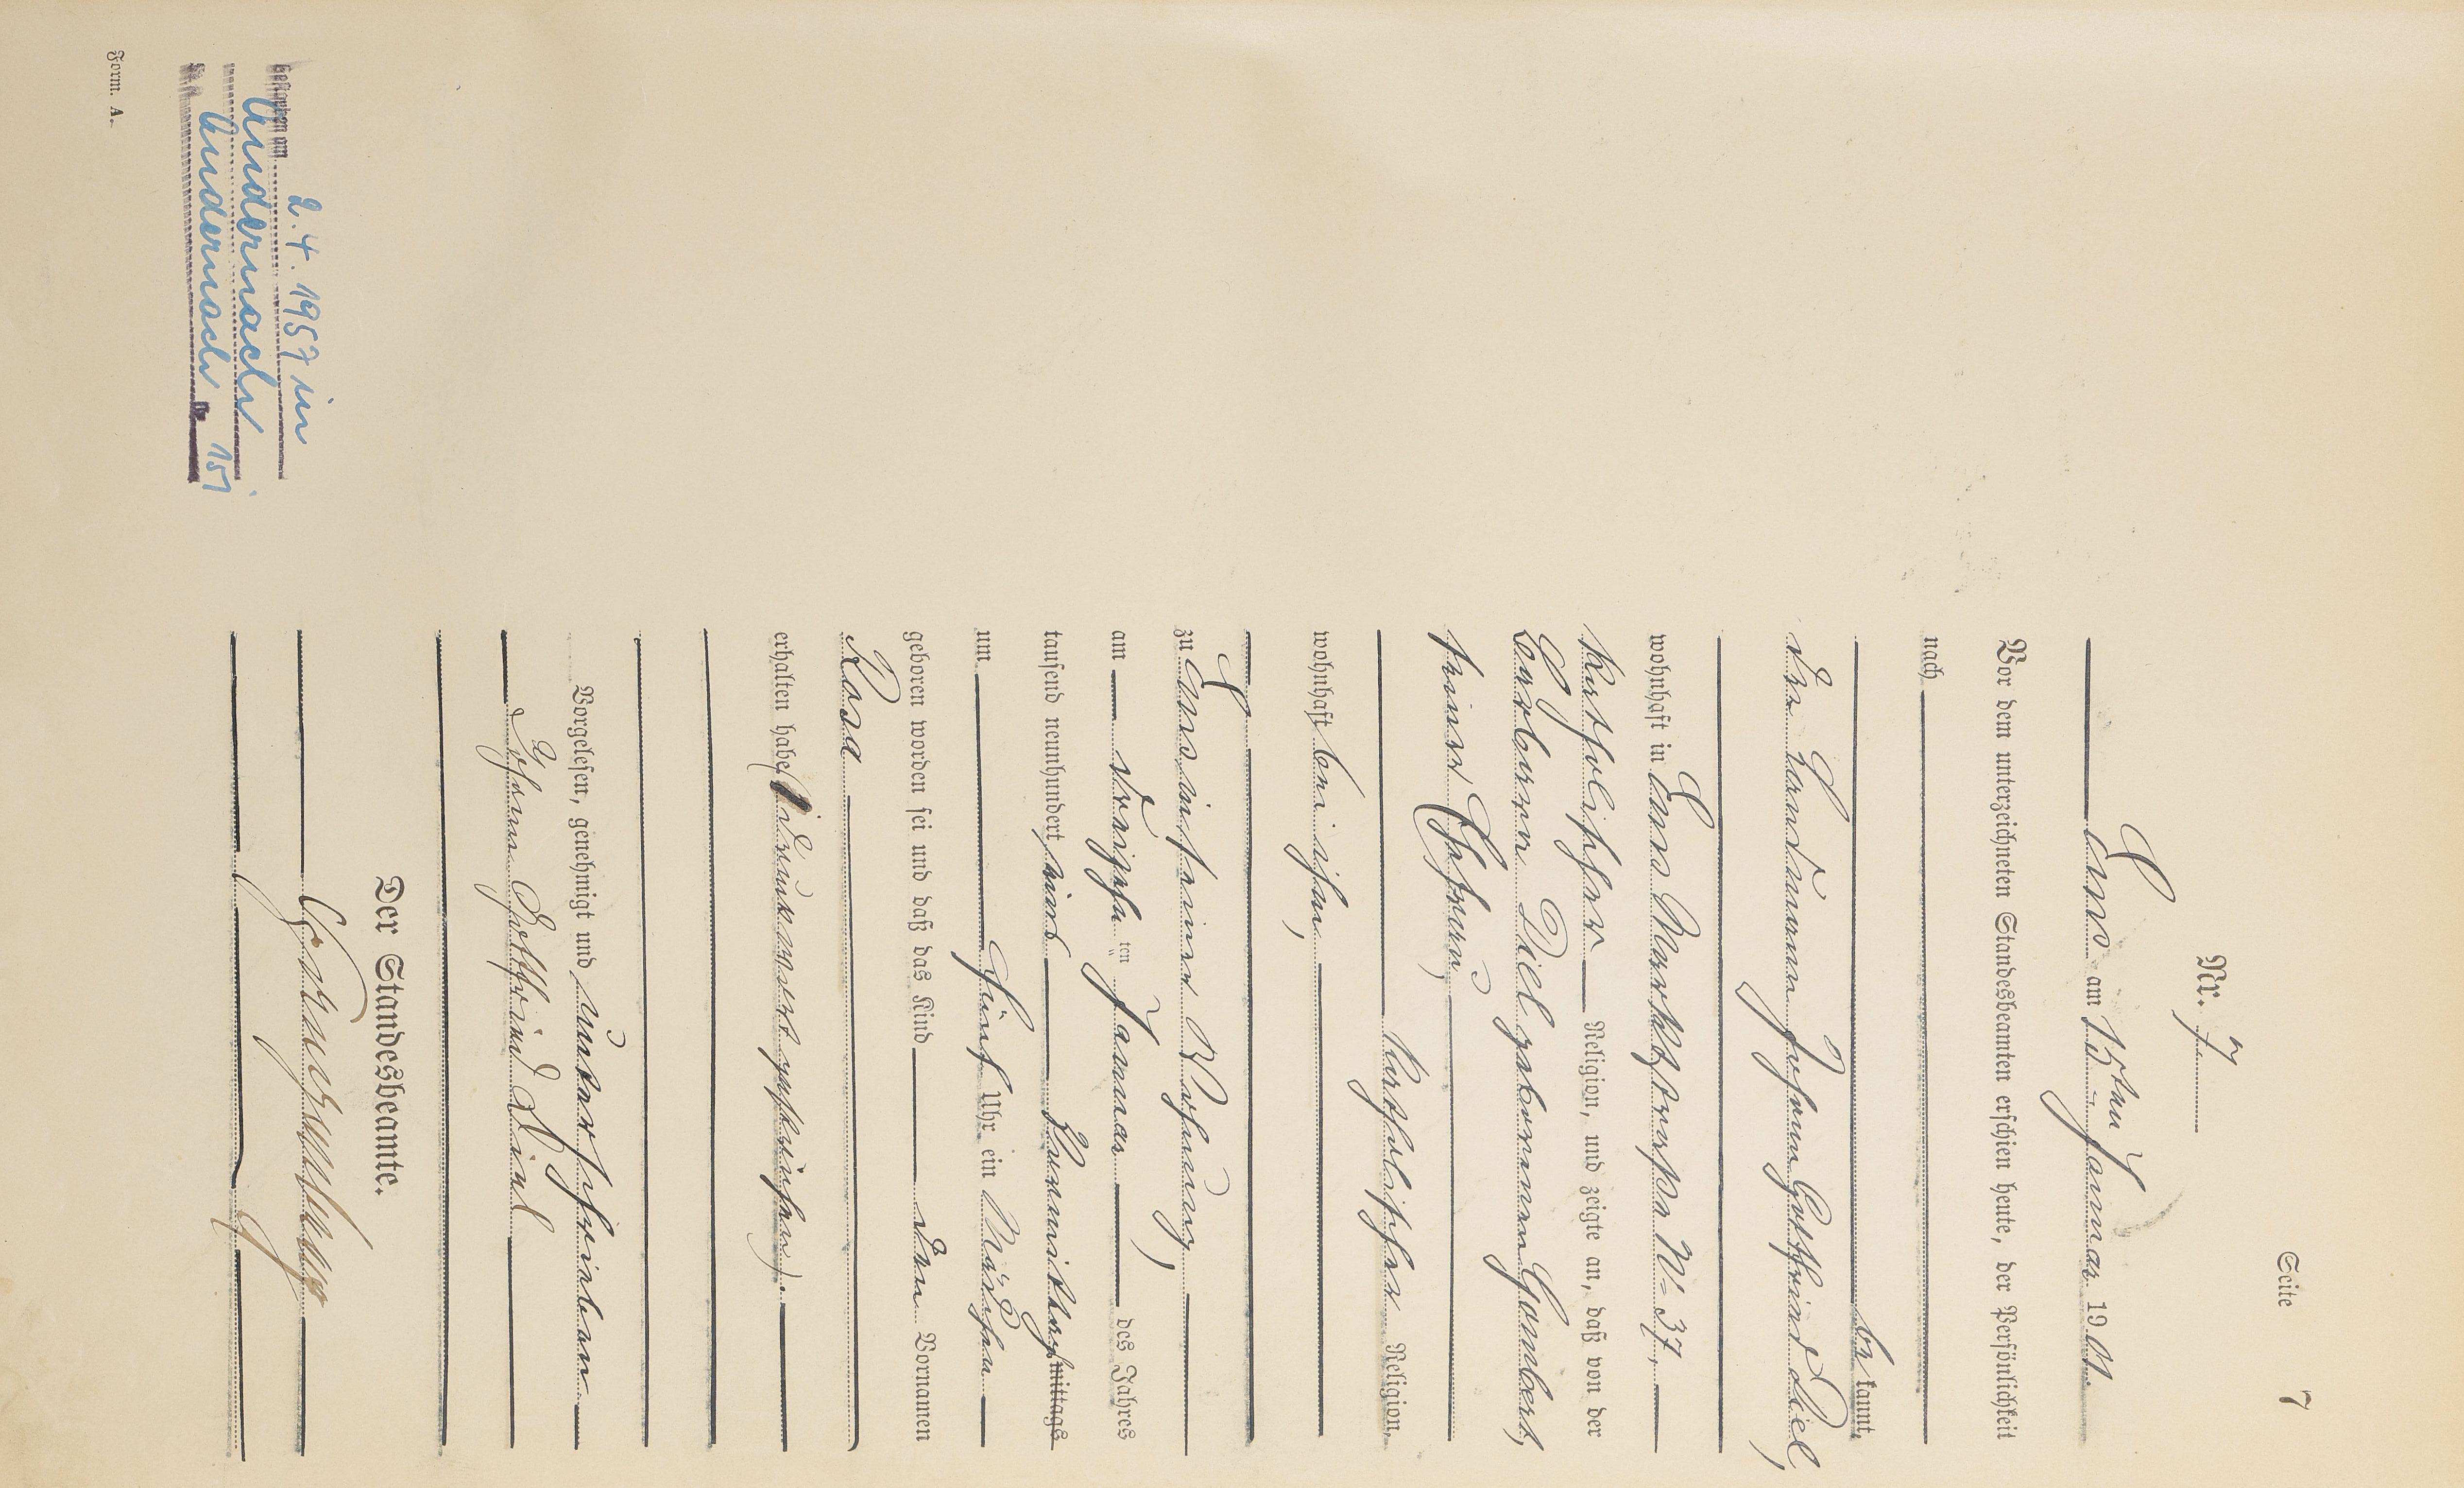 Seite 7
Nr. 7
Ems am 15ten Januar 1901.
Vor dem unterzeichneten Standesbeamten erschien heute, der Persönlichkeit
nach
be kannt,
der Hausmann Johann Gottfried Diel,
wohnhaft in Ems Marktstraße No 37,
katholischer Religion, und zeigte an, daß von der
Barbara Diel geborenen Gombert,
seiner Ehefrau,
katholischer Religion,
wohnhaft bei ihm,
zu Ems in seiner Wohnung,
am dreizehn ten Januar des Jahres
tausend neunhundert eins Vormittags mittags
um fünf Uhr ein Mädchen
geboren worden sei und daß das Kind den Vornamen
Rosa
erhalten habe
Vorgelesen, genehmigt und unterschrieben
Johann Gottfried Diel
Der Standesbeamte.
gestorben am 2.4.1957 in
Andernach
Andernach Nr. 151
Form. A.